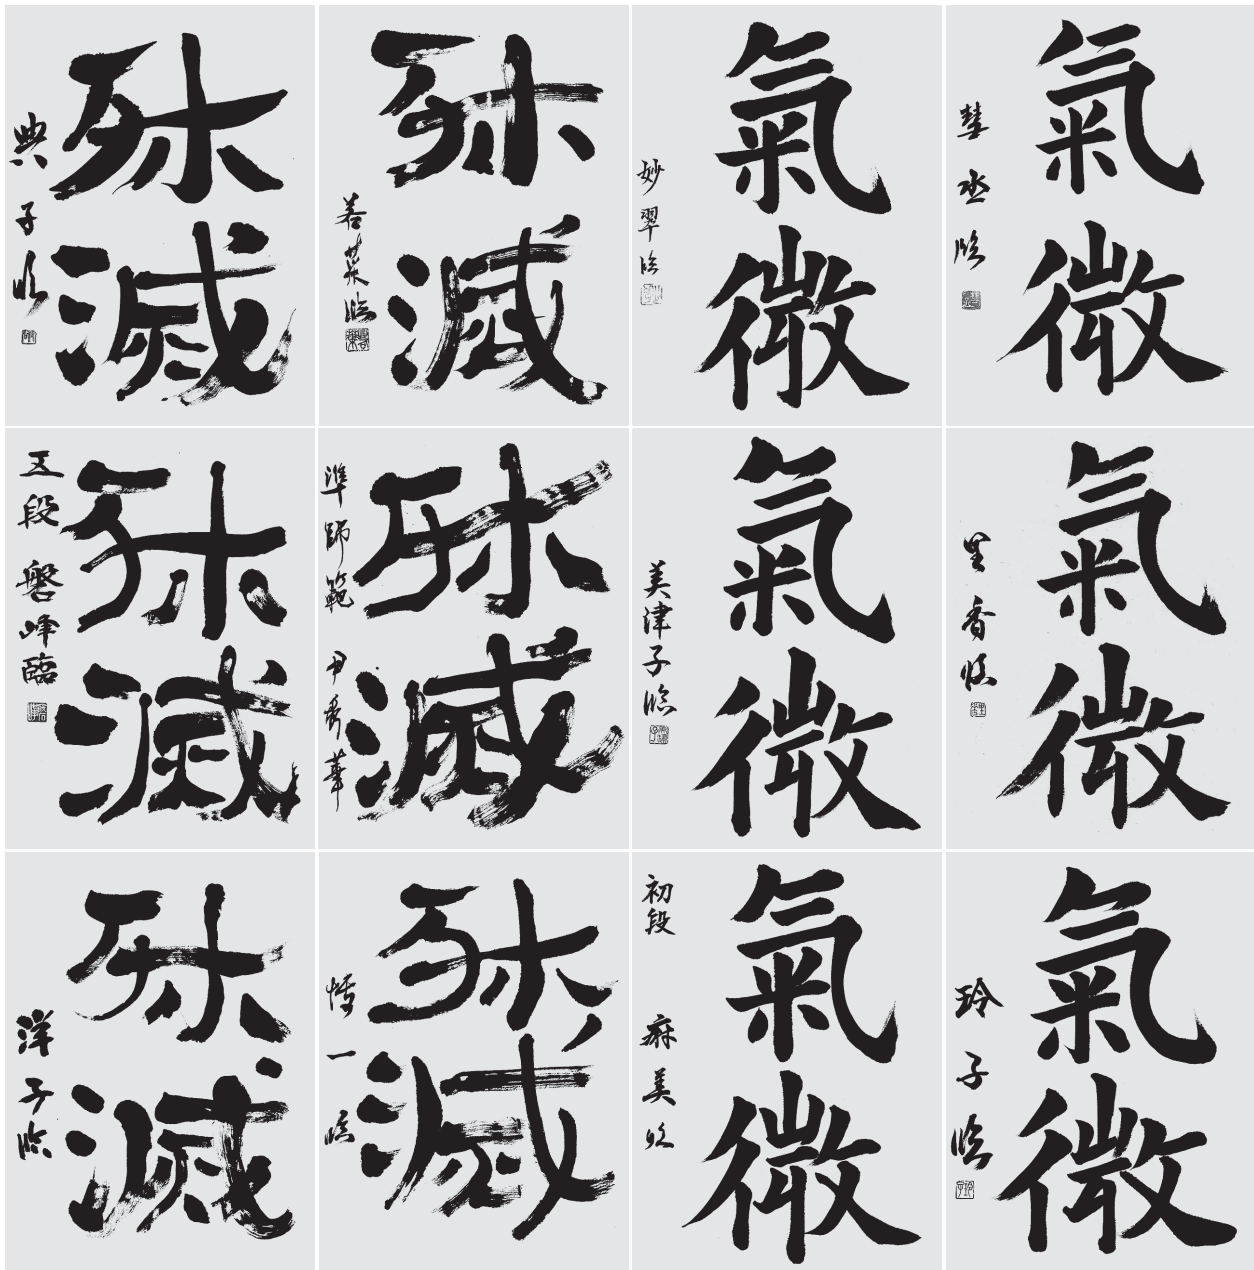 氣微
彗丞臨
氣微
妙翠臨
殊滅
若菜臨
殊滅
典子臨
氣微
里香臨
氣微
美津子臨
殊滅
準師範 尹秀華
殊滅
五段 磐峰臨
氣微
玲子臨
氣微
初段 麻美臨
殊滅
一臨
殊滅
洋子臨